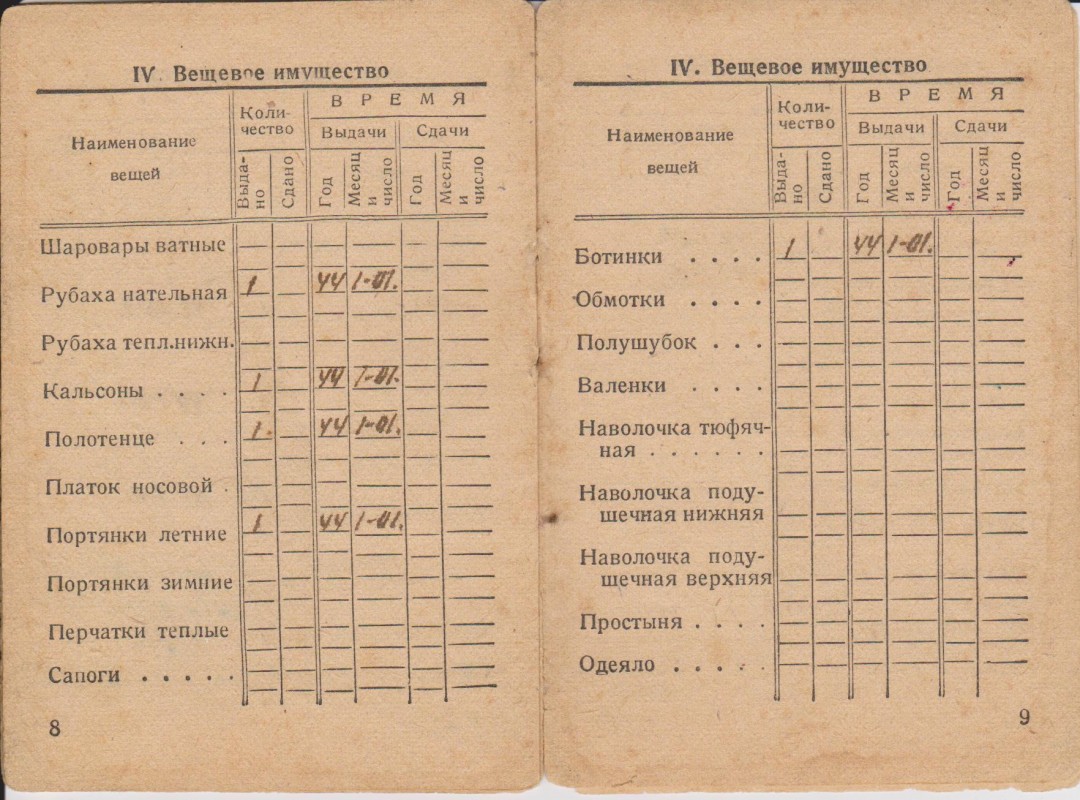 IV. Вещевое имущество
Наименование вещей
Коли-
чество
ВРЕМЯ
Выдачи
Сдачи
Выда-
но
Сдано
Год
Месяц
и
число
Год
Месяц
и
число
Шаровары ватные
Рубаха нательная 1 44 1-01.
Рубаха тепл.нижн.
Кальсоны . . . . 1 44 1-01.
Полотенце . . . 1. 44 1-01.
Платок носовой .
Портянки летние 1 44 1-01.
Портянки зимние
Перчатки теплые
Сапоги . . . . .
8
IV. Вещевое имущество
Наименование вещей
Коли-
чество
ВРЕМЯ
Выдачи
Сдачи
Выда-
но
Сдано
Год
Месяц
и
число
Год
Месяц
и
число
Ботинки . . . . 1 44 1-01.
Обмотки . . . .
Полушубок . . .
Валенки . . . .
Наволочка тюфяч-
ная . . . . . .
Наволочка поду-
шечная нижняя
Наволочка поду-
шечная верхняя
Простыня . . . .
Одеяло . . . . .
9